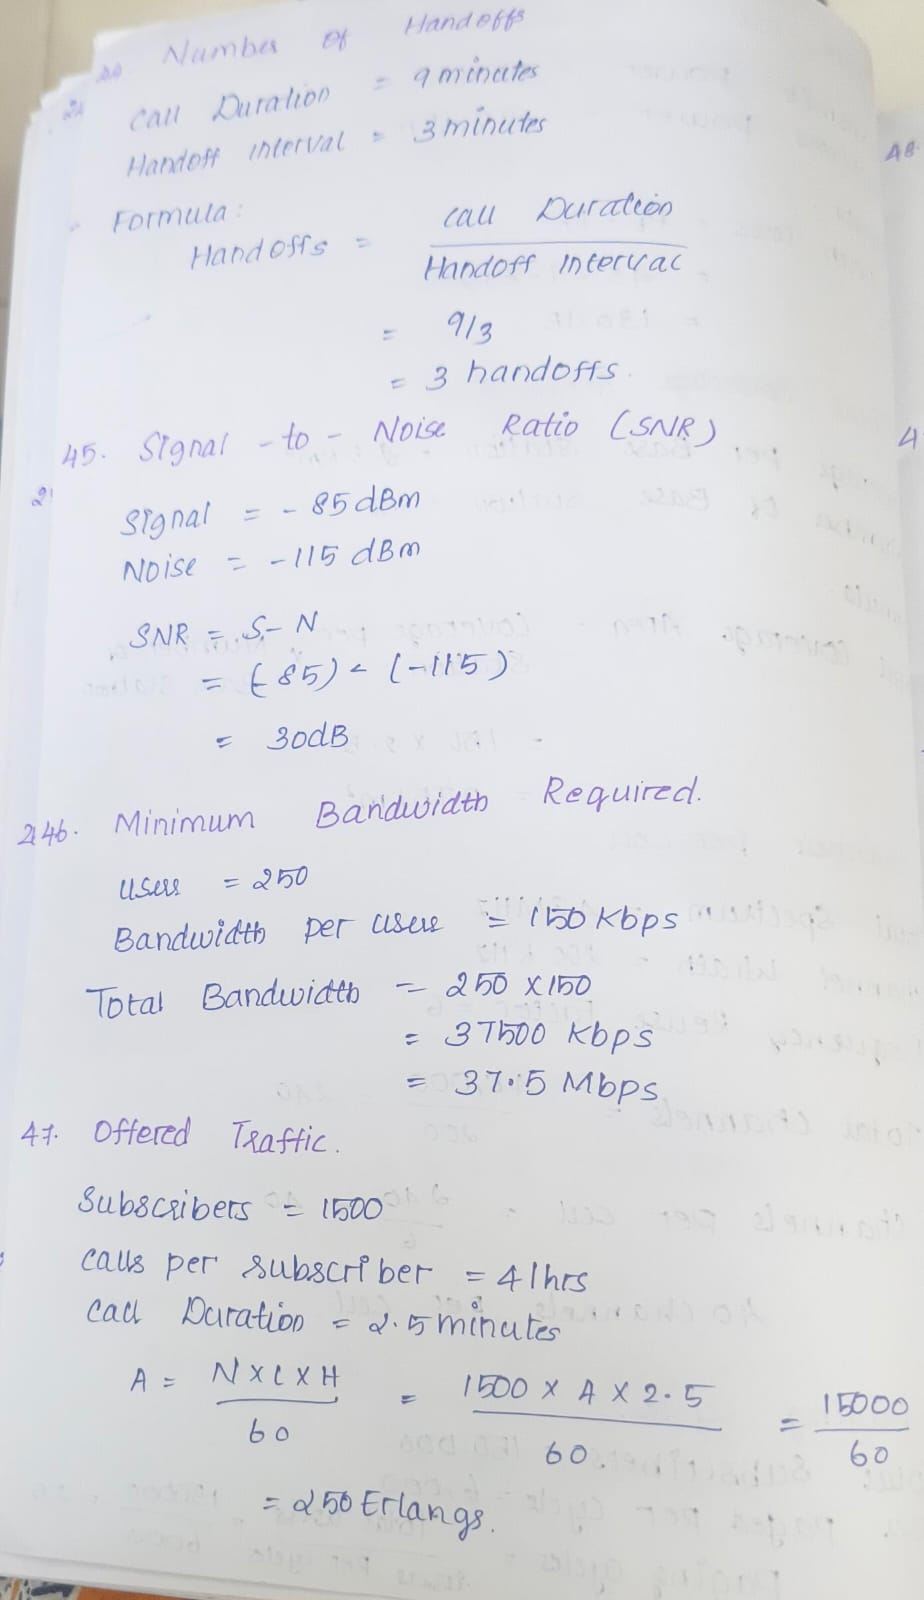 Number of Handoffs
Call Duration = 9 minutes
Handoff interval = 3 minutes
Formula:
Handoffs = Call Duration / Handoff interval
= 9/3
= 3 handoffs.
45. Signal-to-Noise Ratio (SNR)
Signal = -85 dBm
Noise = -115 dBm
SNR = S-N
= (-85) - (-115)
= 30dB
46. Minimum Bandwidth Required.
Users = 250
Bandwidth per user = 150 Kbps
Total Bandwidth = 250 x 150
= 37500 Kbps
= 37.5 Mbps
47. Offered Traffic.
Subscribers = 1500
Calls per subscriber = 4/hrs
Call Duration = 2.5 minutes
A = N x C x H / 60 = 1500 x 4 x 2.5 / 60. = 15000 / 60
= 250 Erlangs.
48.